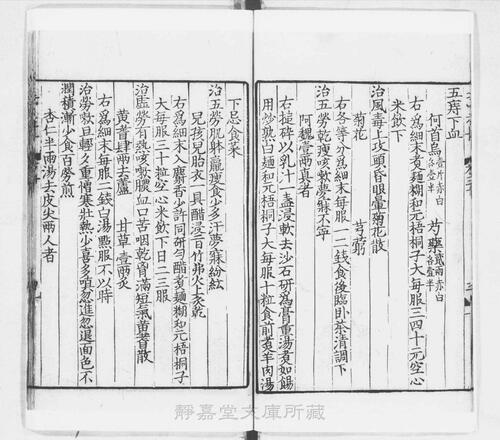 五痔下血
何首烏壹斤赤白各壹半 芍藥貳兩赤白各壹半
右爲細末煑麵糊和元梧桐子大每服三四十元空心
米飲下
治風毒上攻頭昏眼暈菊花散
菊花 芎藭
右各等分爲細末每服一二錢食後臨卧茶清調下
治五勞乾瘦咳嗽夢寐不寧
阿魏壹兩真者
右搥碎以乳汁一盞浸軟去沙石研爲膏重湯煑如餳
用炒熟白麵和元梧桐子大每服十粒食前煑羊肉湯
下忌食菜
治五勞肌躰羸瘦食少多汗夢寐紛紜
兒孩兒胎衣一具醋浸一百竹弗火上炙乾
右爲細末入麝香少許同研勻醋煑麵糊和元梧桐子
大每服三十粒空心米飲下日二三服
治虛勞有熱咳嗽膿血口苦咽乾胷滿短氣黄耆散
黄耆肆兩去蘆 甘草壹兩炙
右爲細末每服二錢白湯點服不以時
治勞嗽旦輕夕重憎寒壯熱少喜多嗔忽進忽退面色不
潤積漸少食百勞煎
杏仁半兩湯去皮尖兩人者
靜嘉堂文庫所藏